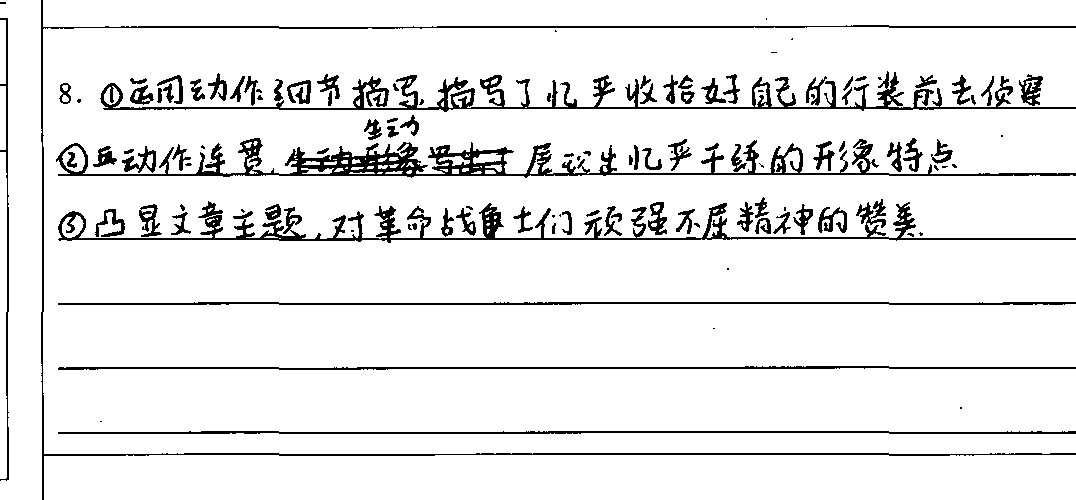 8. ①运用动作细节描写,描写了忆严收拾好自己的行装前去侦察
②且动作连贯,生动展现出忆严干练的形象特点
③凸显文章主题,对革命战士们顽强不屈精神的赞美.